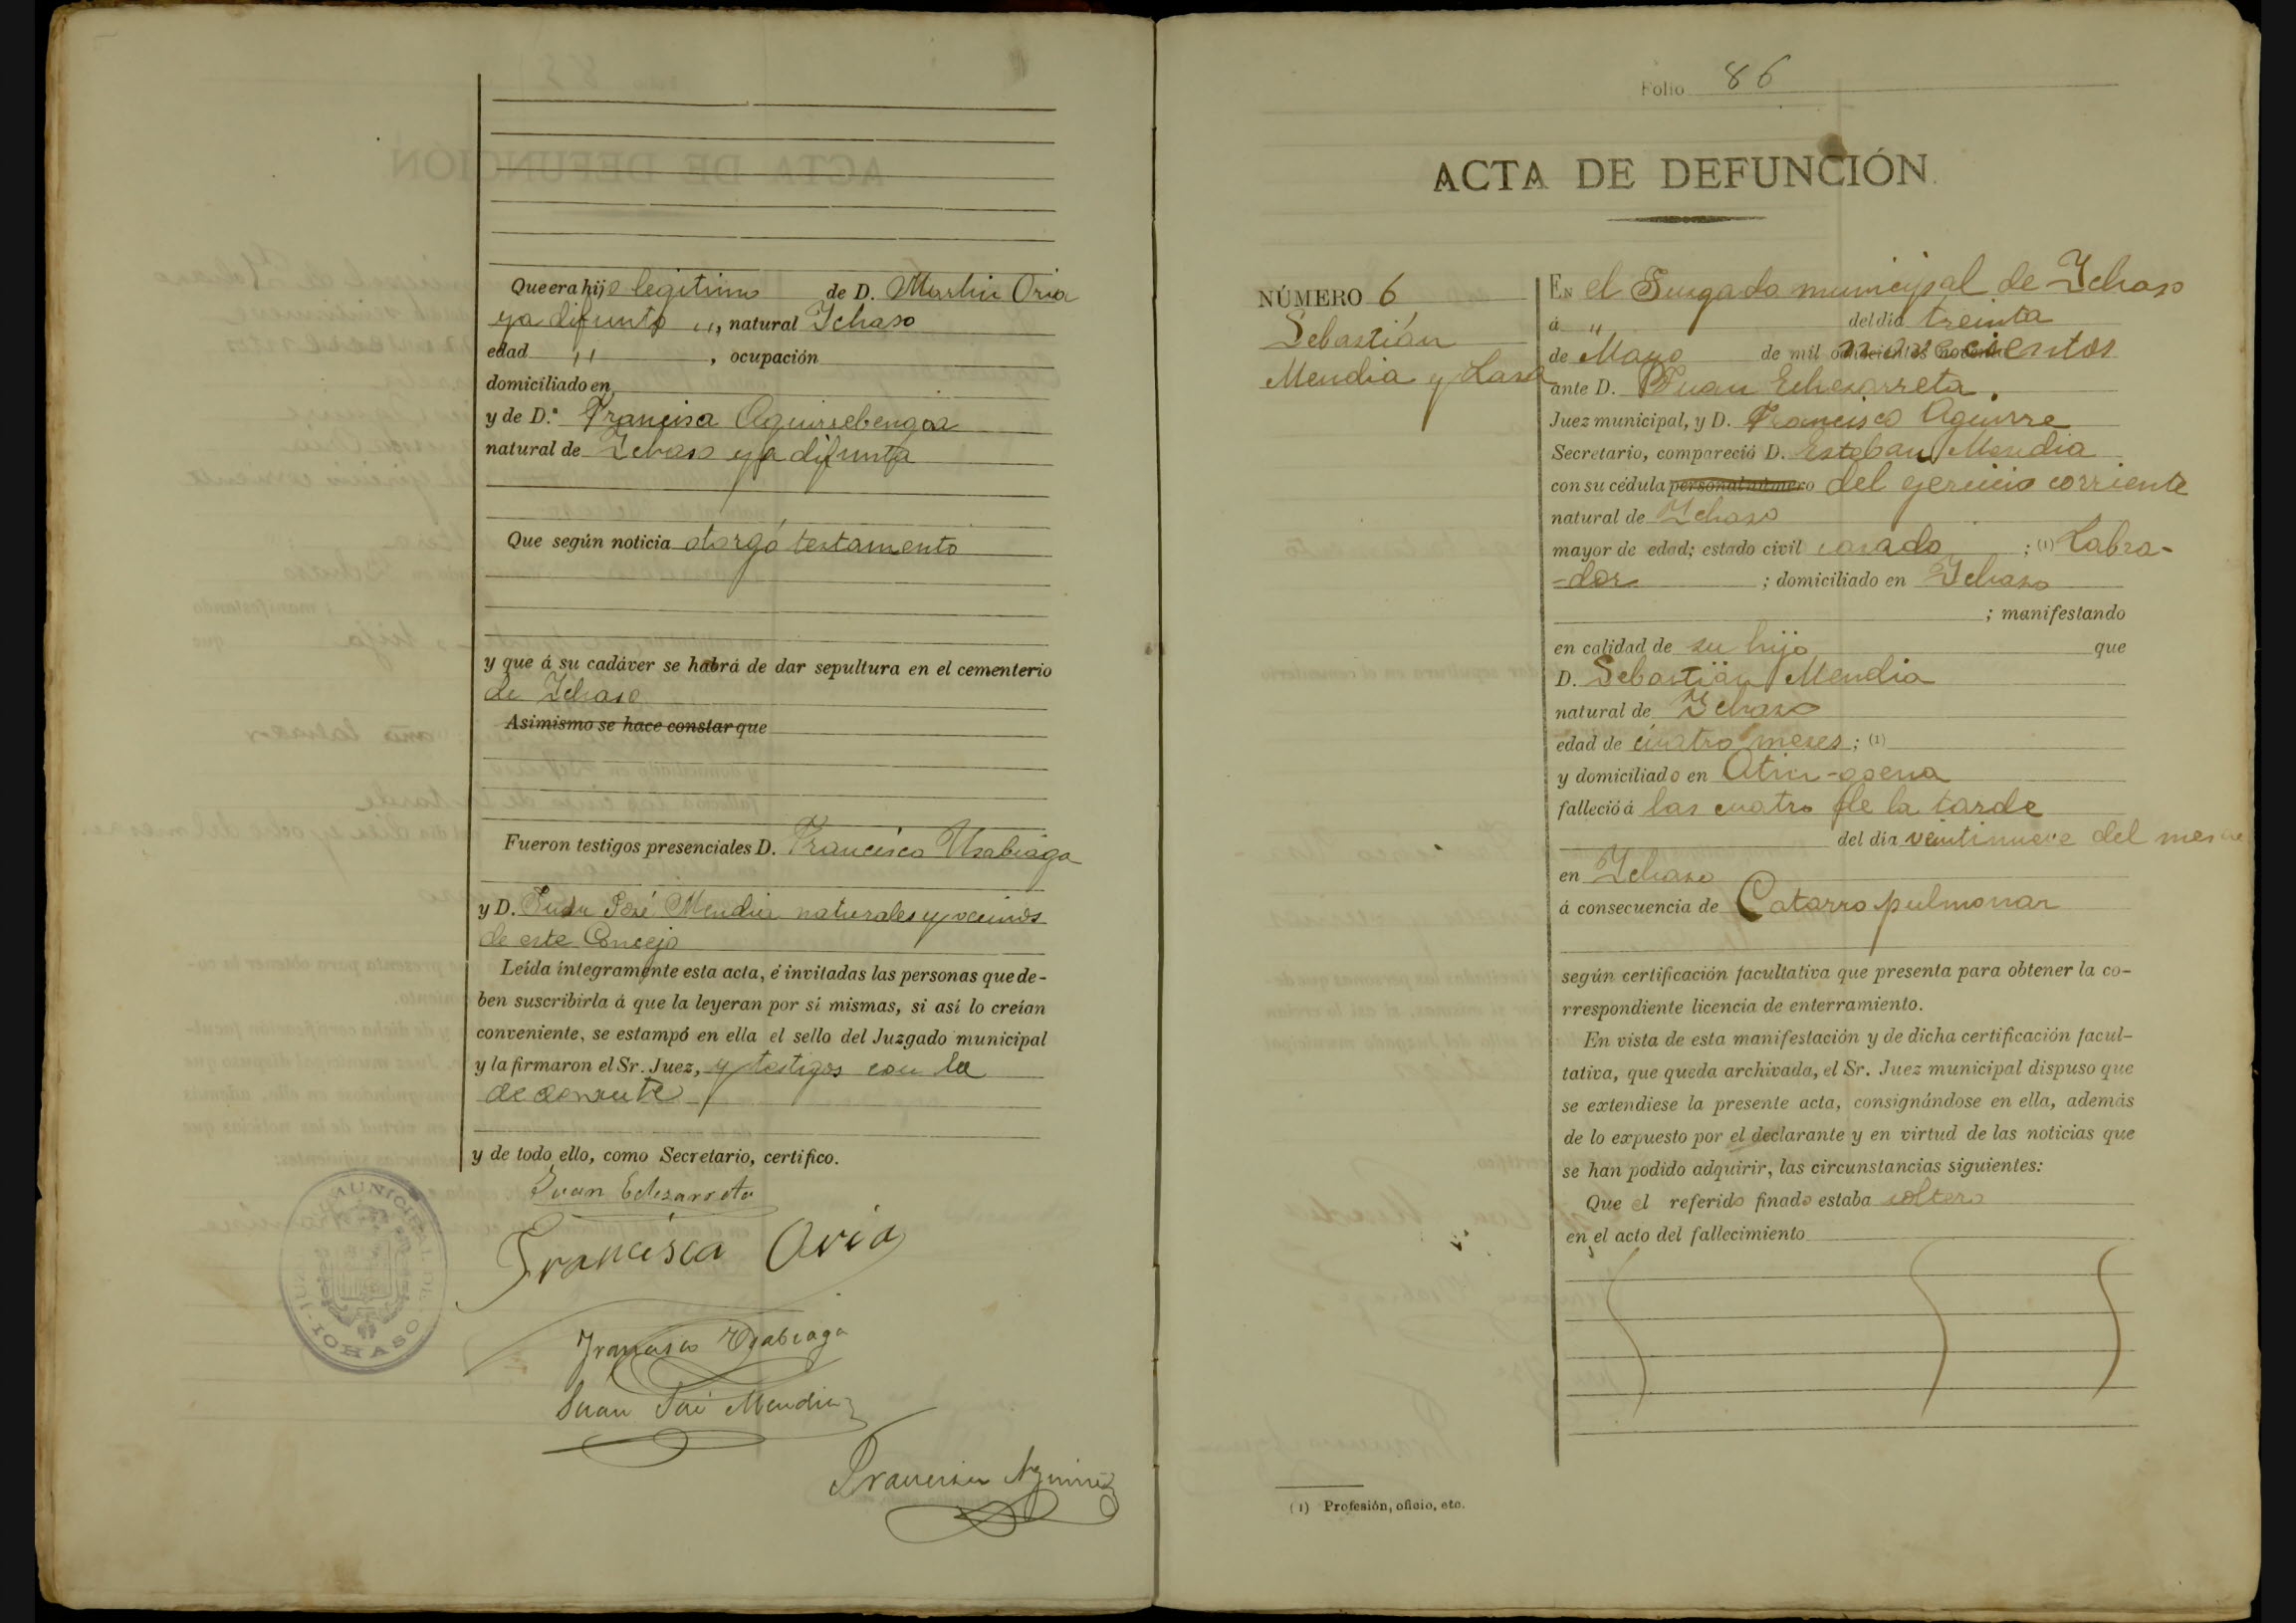 Que era hijo legitimo de D. Martin Oria
ya difunto ,,, natural Ichaso
edad ,, , ocupación
domiciliado en
y de D.ª Francisca Aguirrebengoa
natural de Ichaso ya difunta
Que según noticia otorgó testamento
y que á su cadáver se habrá de dar sepultura en el cementerio
de Ichaso
Asimismo se hace constar que
Fueron testigos presenciales D. Francisco Usabiaga
y D. Juan José Mendia naturales y vecinos
de este Concejo
Leída íntegramente esta acta, é invitadas las personas que de-
ben suscribirla á que la leyeran por sí mismas, si así lo creían
conveniente, se estampó en ella el sello del Juzgado municipal
y la firmaron el Sr. Juez, y testigos con la
y de todo ello, como Secretario, certifico.
Juan Echezarreta
Francisca Oria
Francisco Usabiaga
Juan José Mendia
Francisco Aguirre
MUNICIPAL DE ICHASO
Folio 86
ACTA DE DEFUNCIÓN
NÚMERO 6
Sebastián
Mendia y Lasa
EN el Juzgado municipal de Ichaso
á ,, del dia treinta
de Mayo de mil novecientos
ante D. Juan Echezarreta
Juez municipal, y D. Francisco Aguirre
Secretario, compareció D. Esteban Mendia
con su cédula personal número del ejercicio corriente
natural de Ichaso
mayor de edad; estado civil casado ; (1) Labra-
-dor ; domiciliado en Ichaso
; manifestando
en calidad de su hijo que
D. Sebastián Mendia
natural de Ichaso
edad de cuatro meses ; (1)
y domiciliado en
falleció á las cuatro de la tarde
del dia veintinueve del mes
en Ichaso
á consecuencia de Catarro pulmonar
según certificación facultativa que presenta para obtener la co-
rrespondiente licencia de enterramiento.
En vista de esta manifestación y de dicha certificación facul-
tativa, que queda archivada, el Sr. Juez municipal dispuso que
se extendiese la presente acta, consignándose en ella, además
de lo expuesto por el declarante y en virtud de las noticias que
se han podido adquirir, las circunstancias siguientes:
Que el referido finado estaba soltero
en el acto del fallecimiento
(1) Profesión, oficio, etc.